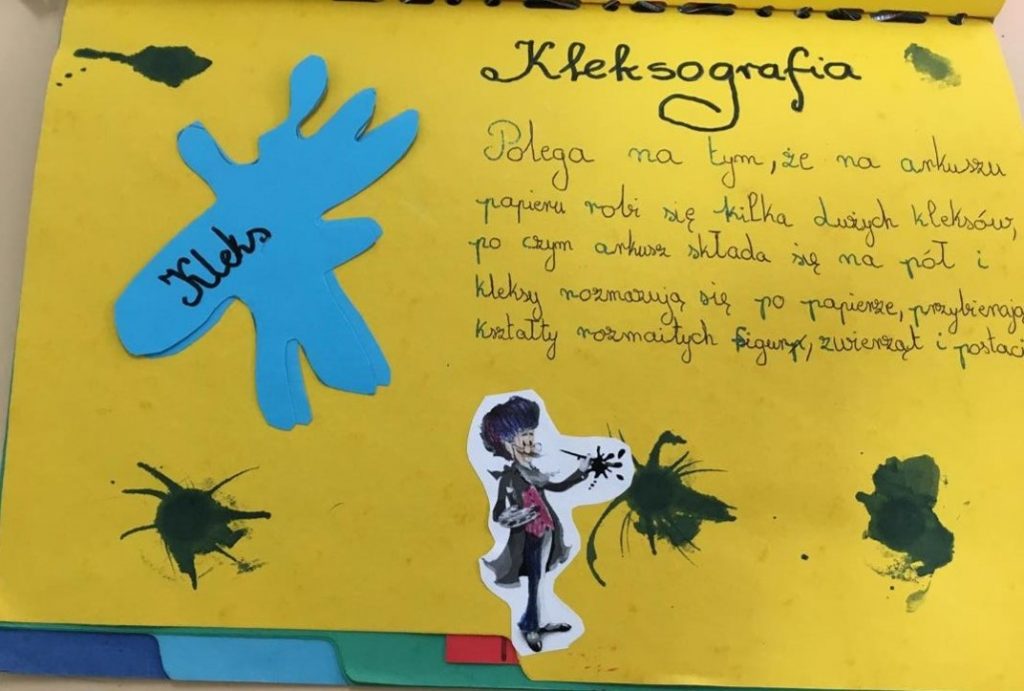 Kleks
Kleksografia
Polega na tym, że na arkuszu
papieru robi się kilka dużych kleksów,
po czym arkusz składa się na pół i
kleksy rozmazują się po papierze, przybierają
kształty rozmaitych figur, zwierząt i postaci